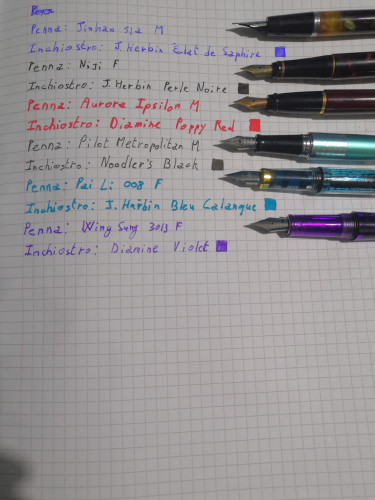 Penna
Penna: Jinhao 51a M
Inchiostro: J. Herbin Éclat de Saphire
Penna: Niji F
Inchiostro: J. Herbin Perle Noire
Penna: Aurora Ipsilon M
Inchiostro: Diamine Poppy Red
Penna: Pilot Metropolitan M
Inchiostro: Noodler's Black
Penna: Pai Li 008 F
Inchiostro: J. Herbin Bleu Calanque
Penna: Wing Sung 3013 F
Inchiostro: Diamine Violet